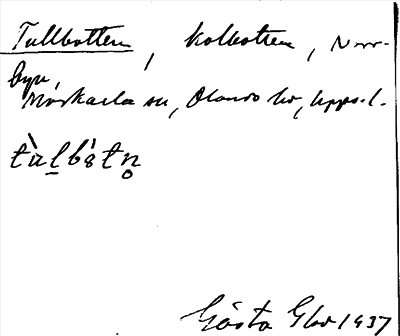 Tullbotten, kolbotten, Norr-
byn,
Morkarla sn, Olands hd, Upps. l.
tùlbótn̥
Gösta Gbd 1937